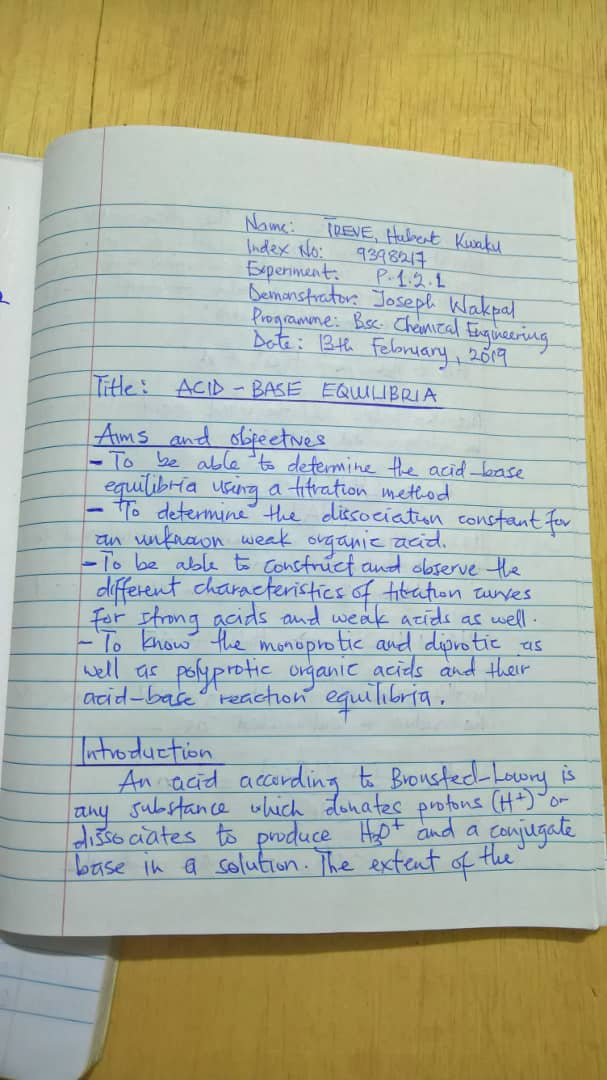 Name: TREVE, Hubert Kwaku
Index No: 9398217
Experiment: P.1.2.1
Demonstrator: Joseph Wakpal
Programme: Bsc. Chemical Engineering
Date: 13th February, 2019
Title: ACID - BASE EQUILIBRIA
Aims and objectives
- To be able to determine the acid-base
equilibria using a titration method
- To determine the dissociation constant for
an unknown weak organic acid.
- To be able to construct and observe the
different characteristics of titration curves
for strong acids and weak acids as well.
- To know the monoprotic and diprotic as
well as polyprotic organic acids and their
acid-base reaction equilibria.
Introduction
An acid according to Bronsted-Lowry is
any substance which donates protons (H⁺) or
dissociates to produce H₃O⁺ and a conjugate
base in a solution. The extent of the